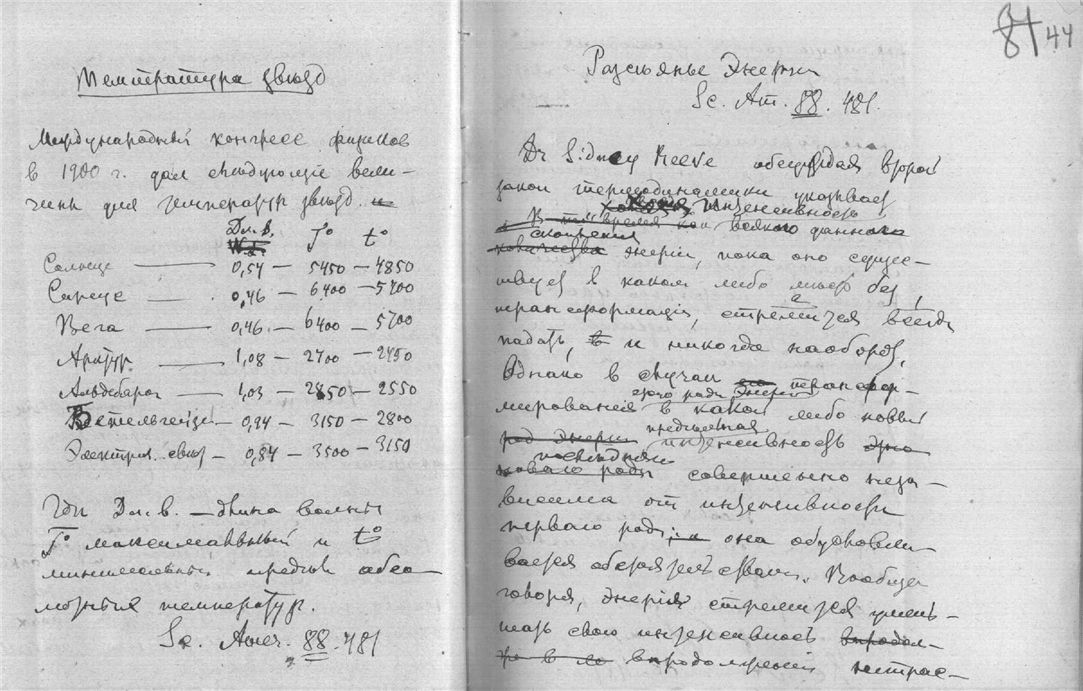 Температура звѣзд
Международный конгресс физиков
в 1900 г. дал следующие вели-
чины для температур звѣзд.
Дл.в. T° t°
Солнце — 0,54 — 5450 — 4850
Сириус — 0,46 — 6400 — 5700
Вега — 0,46 — 6400 — 5700
Арктур — 1,08 — 2700 — 2450
Альдебаран — 1,03 — 2850 — 2550
Бетельгейзе — 0,94 — 3150 — 2800
Электрич. свет — 0,84 — 3500 — 3150
Где Дл.в. — длина волны
T° максимальный и t°
минимальный предел абсо-
лютных температур.
Sc. Amer. 88. 481
87 44
Разсѣянье Энергии
Sc. Am. 88. 481.
Dr Sidney Reeve обсуждая второй
закон термодинамики указывает
интенсивность
всякого данного
скопления
энергии, пока оно сущес-
твует в каком либо без
трансформации, стремится всегда
падать, и никогда наоборот.
Однако в случаи трансфор-
сего рода энергии
мирования в какой либо новый
предметная
интенсивность
последняя
совершенно неза-
висима от интенсивности
перваго рода; она обусловли-
вается обстоятельствами. Вообще
говоря, энергия стремится умень-
шать свою интенсивность
впродолжении